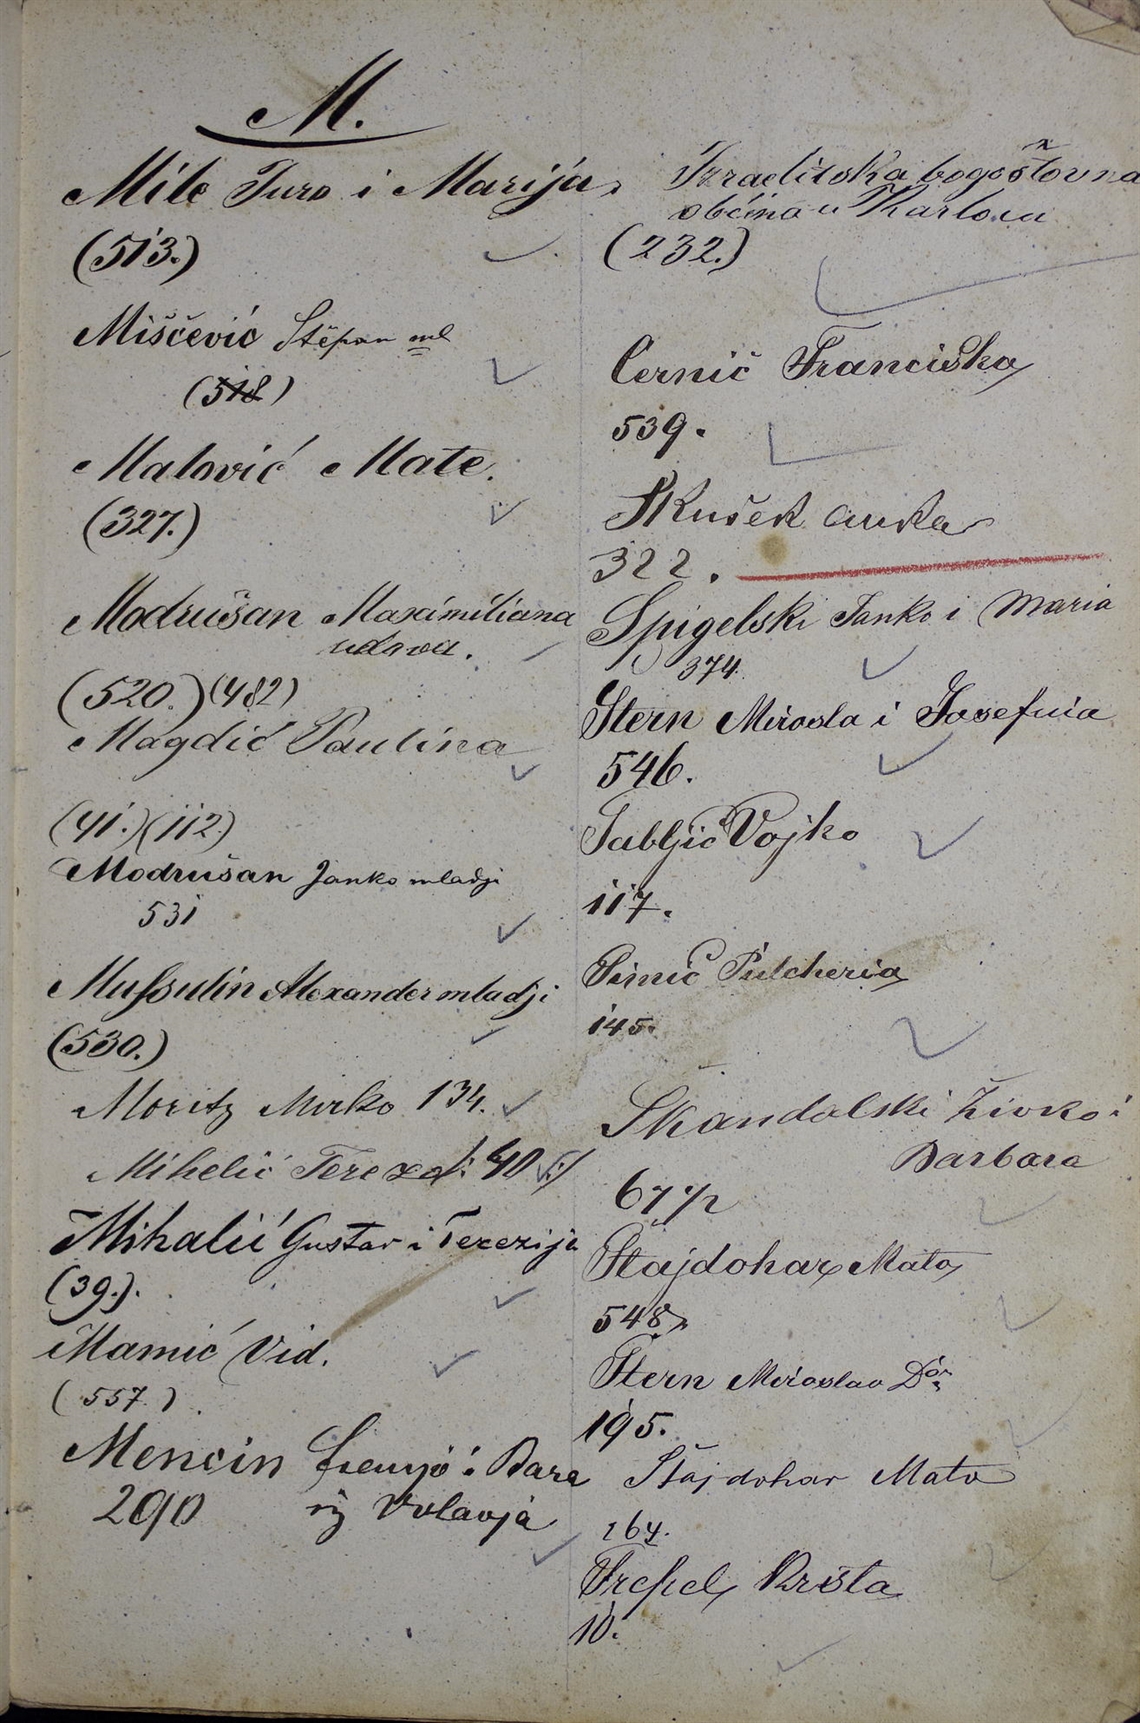 M.
Mile Juro i Marija
(513.)
Miščević Stěpan ml
(518)
Malović Mate.
(327.)
Modrušan Maximiliana
udova.
(520.) (482)
Magdić Paulina
(41.) (112.)
Modrušan Janko mladji
531
Mussulin Alexander mladji
(530.)
Moritz Mirko 134.
Mihelić Tereza /: 40 :/
Mihalić Gustav i Terezija
(39.).
Mamić Vid.
(557.)
Mencin i Bara
290 iz Volavja
Izraelitska bogoštovna
občina u Karlovcu
(232.)
Cernić Franciska
539.
Skušek Anka
322.
Spigelski Janko i Maria
374.
Stern Mirosla i Josefnia
546.
Tabljić Vojko
117.
Simić Pulcheria
145.
Škandalski Živko i
Barbara
67
Štajdohar Mato
548
Stern Miroslav Dor
195.
Štajdohar Mato
164.
Krista
10.